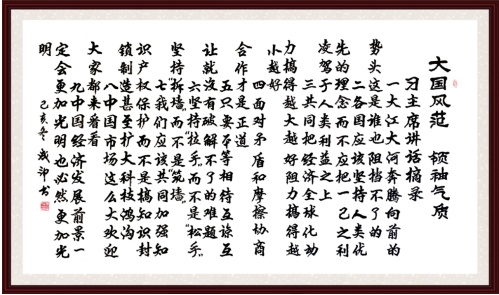 大国风范 领袖气质
习主席讲话摘录
一大江大河奔腾向前的
势头这是谁也阻挡不了的
二各国应该坚持人类优
先的理念而不应把一己之利
凌驾于人类利益之上
三共同把经济全球化动
力搞得越大越好阻力搞得越
小越好
四面对矛盾和摩擦协商
合作才是正道
五只要平等相待互谅互
让就没有破解不了的难题
六坚持拉手而不是松手
坚持拆墙而不是筑墙
七我们应该共同加强知
识产权保护而不是搞知识封
锁制造甚至扩大科技鸿沟
八中国市场这么大欢迎
大家都来看看
九中国经济发展前景一
定会更加光明也必然更加光
明
己亥冬 成印书